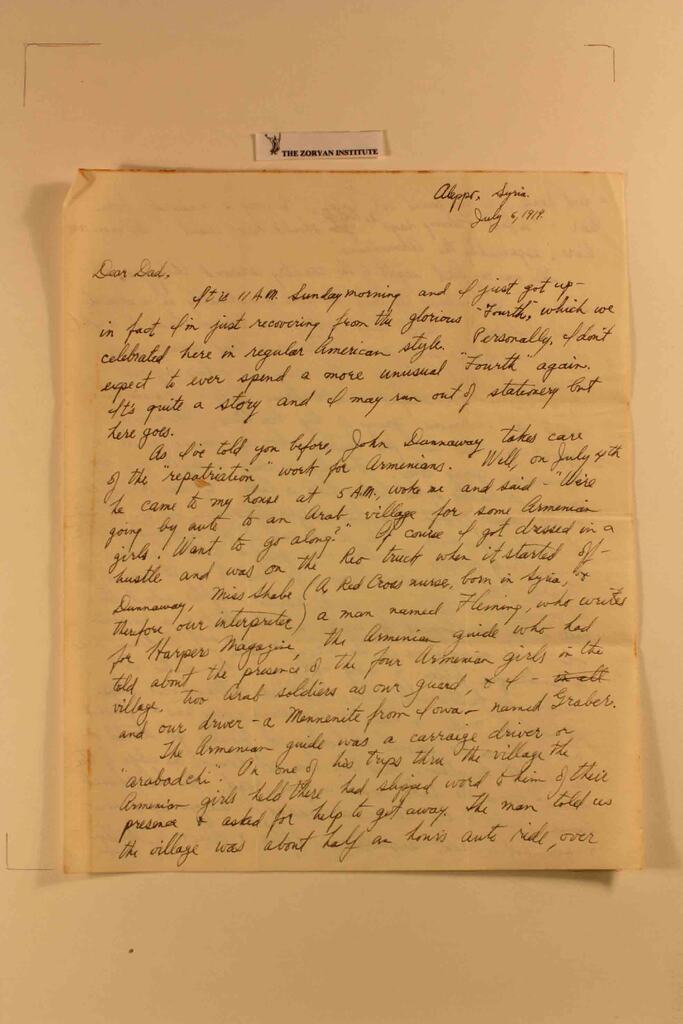 THE ZORYAN INSTITUTE
Aleppo, Syria.
July 6, 1919.
Dear Dad,
It is 11 A.M. Sunday morning and I just got up -
in fact I'm just recovering from the glorious "Fourth", which we
celebrated here in regular American style. Personally, I don't
expect to ever spend a more unusual "Fourth" again.
It's quite a story and I may run out of stationery but
here goes.
As I've told you before, John Dunnaway takes care
of the "repatriation" work for Armenians. Well, on July 4th
he came to my house at 5 A.M., woke me and said - "We're
going by auto to an Arab village for some Armenian
girls! Want to go along?" Of course I got dressed in a
hustle and was on the Reo truck when it started off -
Dunnaway, Miss Shebe (A Red Cross nurse, born in Syria, &
therefore our interpreter) a man named Fleming, who writes
for Harpers Magazine, the Armenian guide who had
told about the presence of the four Armenian girls in the
village, two Arab soldiers as our guard, & I - in all
and our driver - a Mennenite from Iowa - named Graber.
The Armenian guide was a carraige driver or
"arabadchi". On one of his trips thru the village the
Armenian girls held there had slipped word to him of their
presence & asked for help to get away. The man told us
the village was about half an hour's auto ride, over